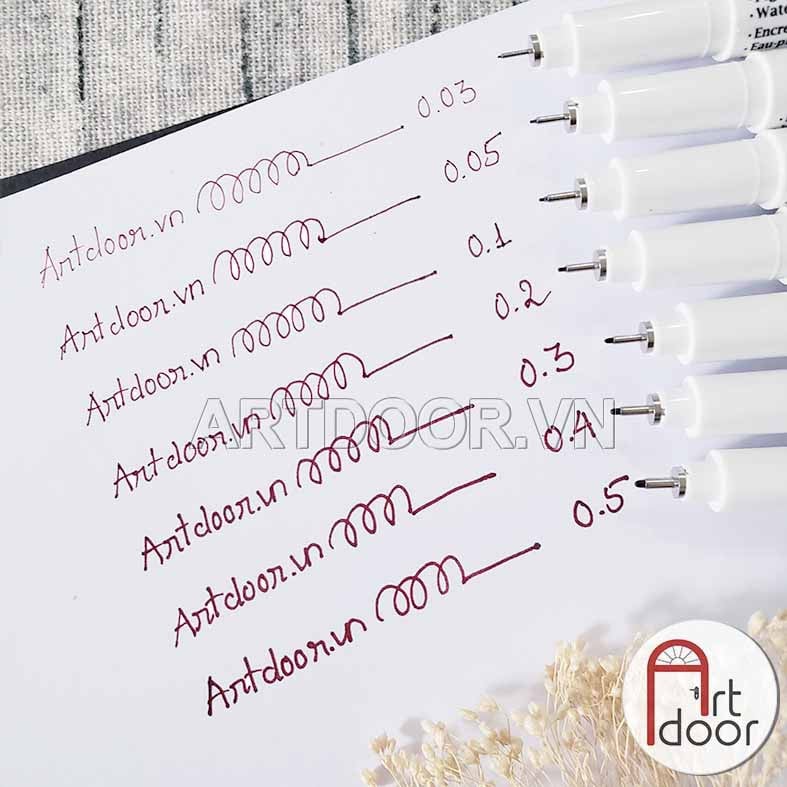 Wate
Encre
Eau-p
Artdoor.vn 0.03
Artdoor.vn 0.05
Artdoor.vn 0.1
Artdoor.vn 0.2
Artdoor.vn 0.3
Artdoor.vn 0.4
Artdoor.vn 0.5
ARTDOOR.VN
Art
door